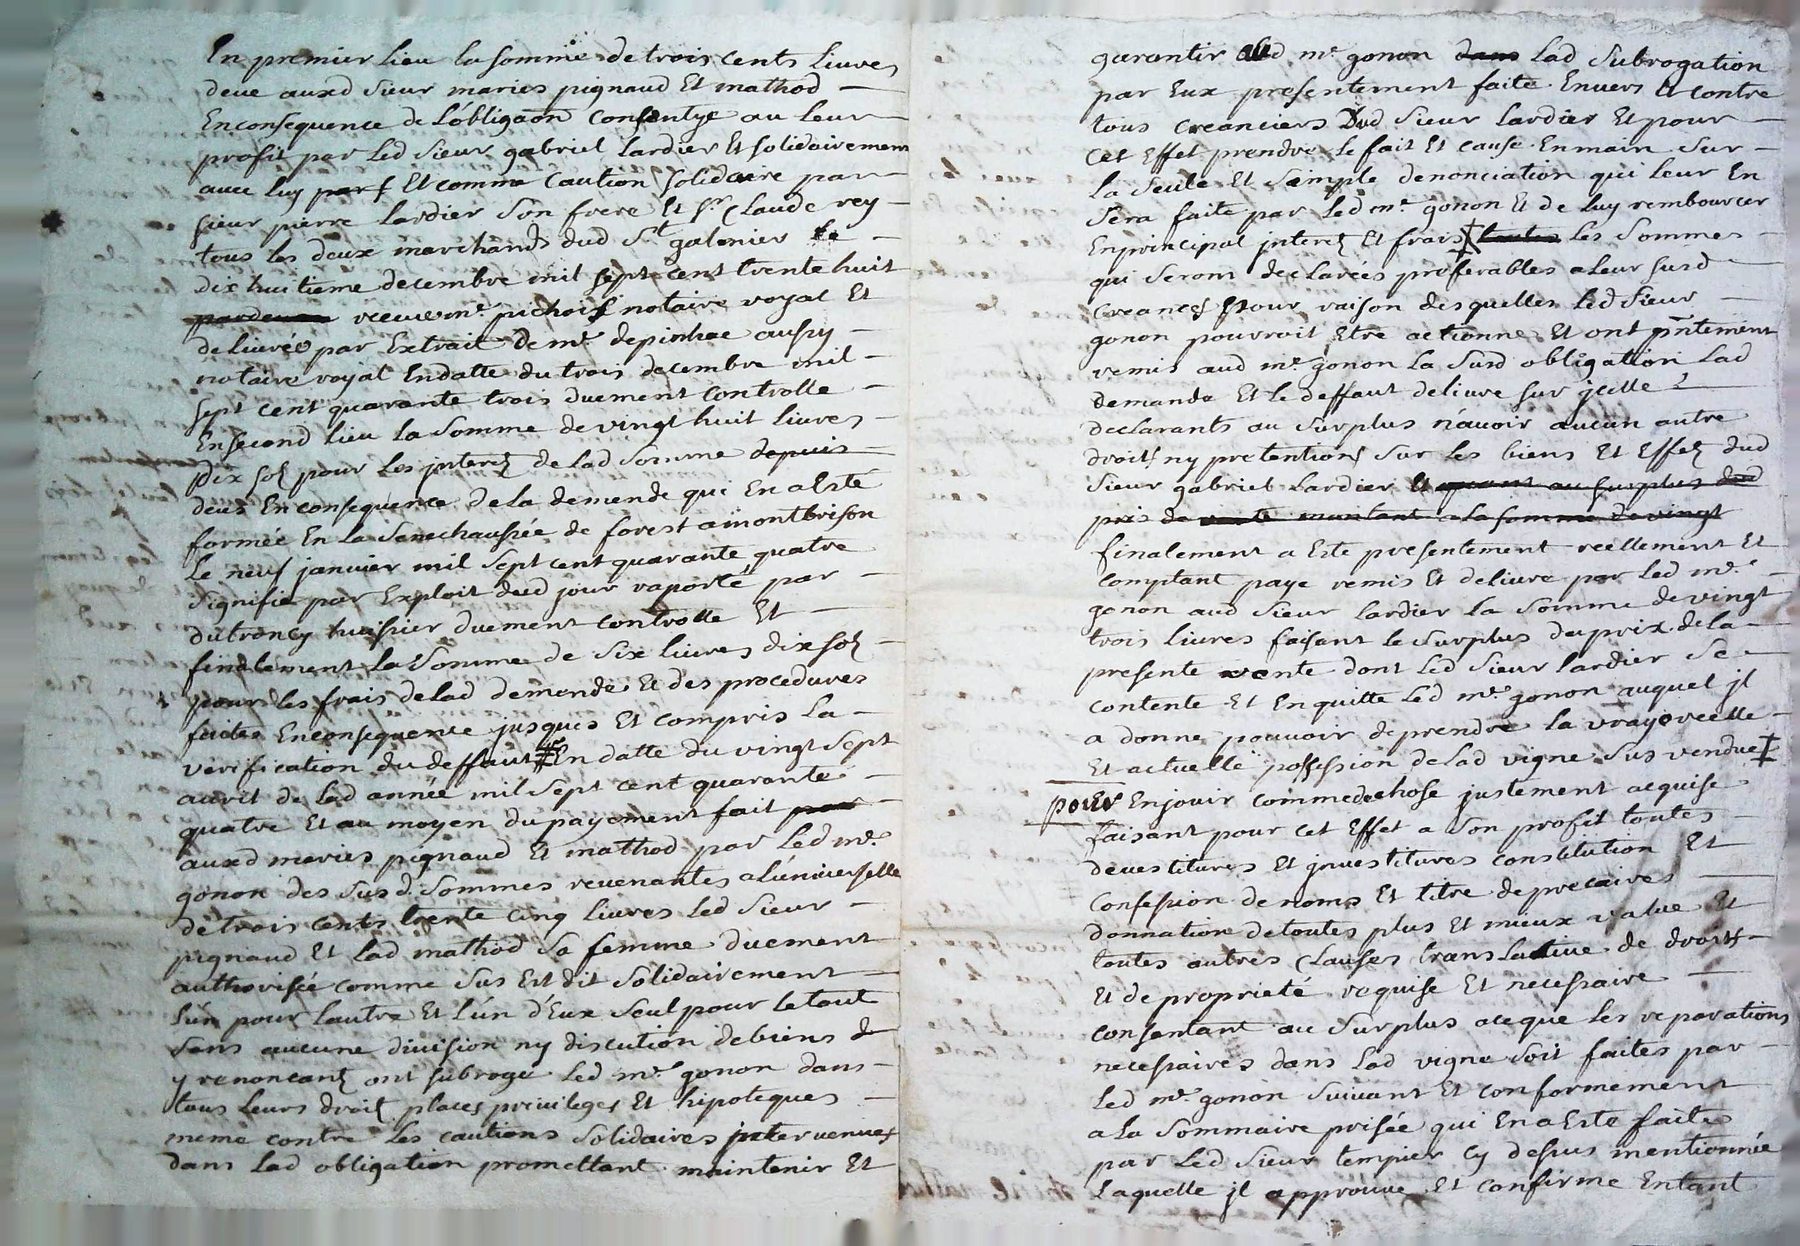 En premier lieu la somme de trois cents livres
deue auxd sieur maries pignaud Et mathod
En consequence de l'obligaon consentye au leur
profit par led sieur gabriel lardier Et solidairement
avec luy Et comme Caution solidaire par
sieur pierre lardier son frere Et sr Claude rey
tous les deux marchands dud St galmier le
dix huitieme decembre mil sept cent trente huit
pardevan receue me pichois notaire royal Et
delivree par Extrait de me depinhac aussy
notaire royal En datte du trois decembre mil
sept cent quarante trois duement controlle
En second lieu la somme de vingt huit livres
dix sols pour les interez de lad somme depuis
deus En consequence de la demende qui En a Esté
formée En la senechaussée de forest a montbrison
le neuf janvier mil sept cent quarante quatre
signifié par Exploit dud jour raporté par
dutroncy huissier duement controlle Et
finalement la somme de six livres dix sols
pour les frais de lad demende Et des procedures
faites En consequence jusques Et compris la
verification du deffaut En datte du vingt sept
avril de lad année mil sept cent quarante
quatre Et au moyen du payement fait par
auxd maries pignaud Et mathod par led me
gonon des susd sommes revenantes a l'universelle
de trois cents trente cinq livres led sieur
pignaud Et lad mathod sa femme duement
authorisée comme sus Est dit solidairement
l'un pour lautre Et l'un d'Eux seul pour le tout
sans aucune division ny discution de biens a
y renoncant ont subrogé led me gonon dans
tous leurs droits places privileges Et hipoteques
meme contre les cautions solidaires intervenues
dans lad obligation promettant maintenir Et
garantir aud me gonon dans lad subrogation
par Eux presentement faite Envers Et contre
tous creanciers Dud sieur lardier Et pour
cet Effet prendre le fait Et cause En main sur
la seule Et simple denonciation qui leur En
sera faite par led me gonon Et de luy rembourcer
En principal interez Et frais toutes les sommes
qui seront declarées preferables a leur susd
creances Et pour raison desquelles led sieur
gonon pourroit Etre actionné Et ont pntement
remis aud me gonon la susd obligation lad
demande Et le deffaut delivre sur icelle
declarants au surplus n'avoir aucun autre
droits ny pretentions sur les biens Et Effez dud
sieur gabriel lardier Et quant au surplus dud
pris de vente montant a la somme de vingt
finalement a Esté presentement reellement Et
comptant payé remis Et delivré par led me
gonon aud sieur lardier la somme de vingt
trois livres faisant le surplus du prix de la
presente vente dont led sieur lardier se
contente Et En quitte led me gonon auquel il
a donné pouvoir de prendre la vraye reelle
Et actuelle possession de lad vigne sus vendue
pour En jouir comme de chose justement acquise
faisant pour cet Effet a son profit toutes
devestitures Et investitures constitution Et
Confession de noms Et titre de precaires
donnation de toutes plus Et mieux value Et
toutes autres Clauses translative de droits
Et de proprieté requise Et necessaire
consentant au surplus a ce que les reparations
necessaires dans lad vigne soit faites par
led me gonon suivant Et conformement
a la sommaire prisée qui En a Esté faite
par led sieur tempier cy dessus mentionnée
laquelle il approuve Et confirme Entant